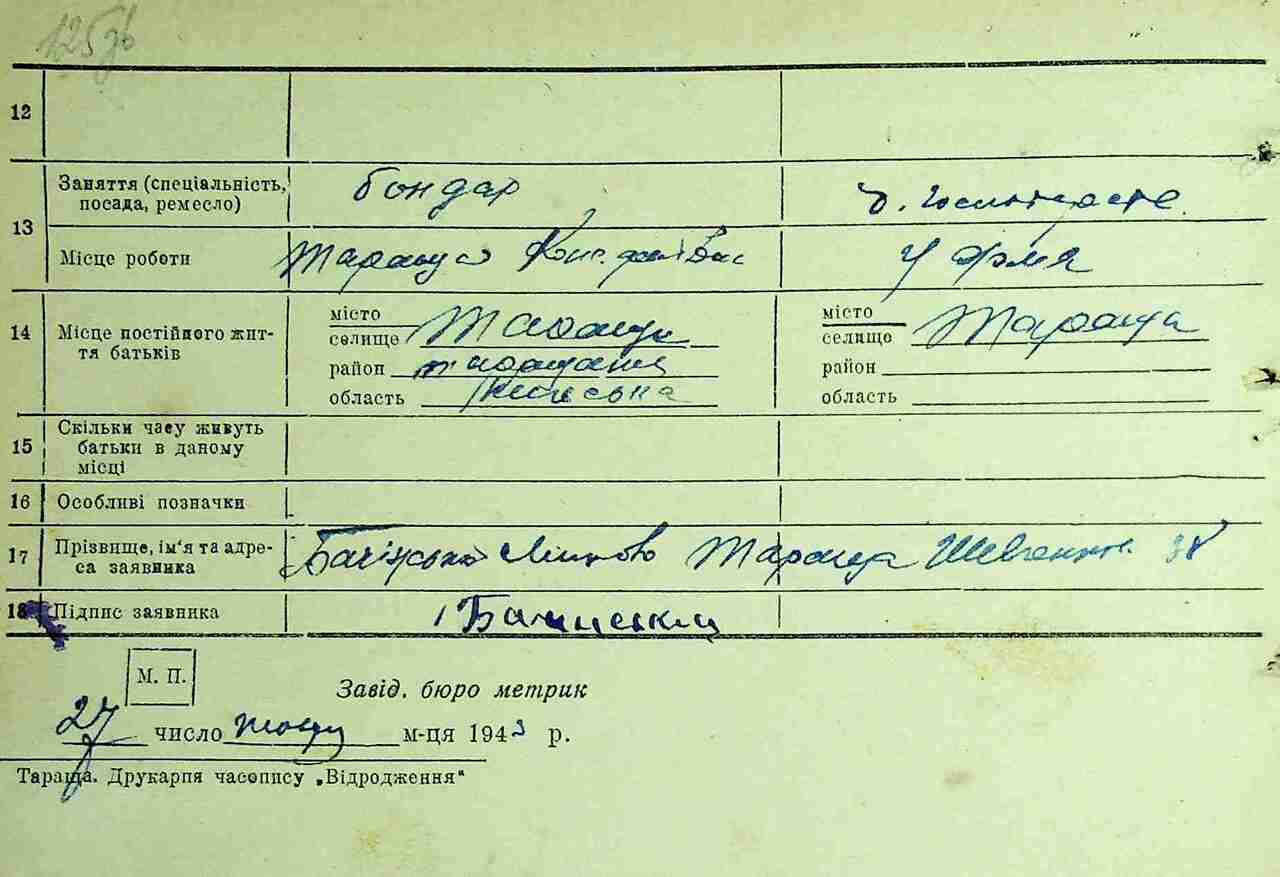 125зв
12
13 Заняття (спеціальність, посада, ремесло) бондар д. господарств.
Місце роботи Тараща Конс. фабрика У дома
14 Місце постійного життя батьків
місто селище Тараща місто селище Тараща
район Таращанський район
область Київська область
15 Скільки часу живуть батьки в даному місці
16 Особливі позначки
17 Прізвище, ім'я та адреса заявника Тараща Шевченк. 38
18 Підпис заявника
М. П.
Завід. бюро метрик
27 число м-ця 1943 р.
Тараща. Друкарня часопису „Відродження"